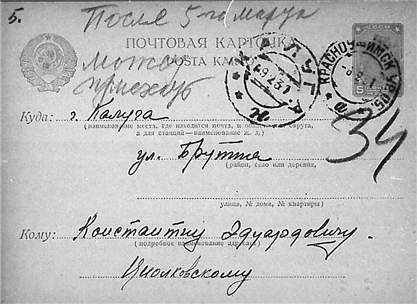 5.
После 5-го марта
ПОЧТОВАЯ КАРТОЧКА
POSTA KAR
может
приехать
КАЛУГА
КРАСНОУФИМСК УРОБ
5
34
Куда: г. Калуга
(наименование места, где находится почта, и области округа,
а для станций—наименование ж. д.)
ул. Брутта
(район, село или деревня,
улица, № дома, № квартиры)
Кому: Константину Эдуардовичу
(подробное наименование адресата)
Циолковскому